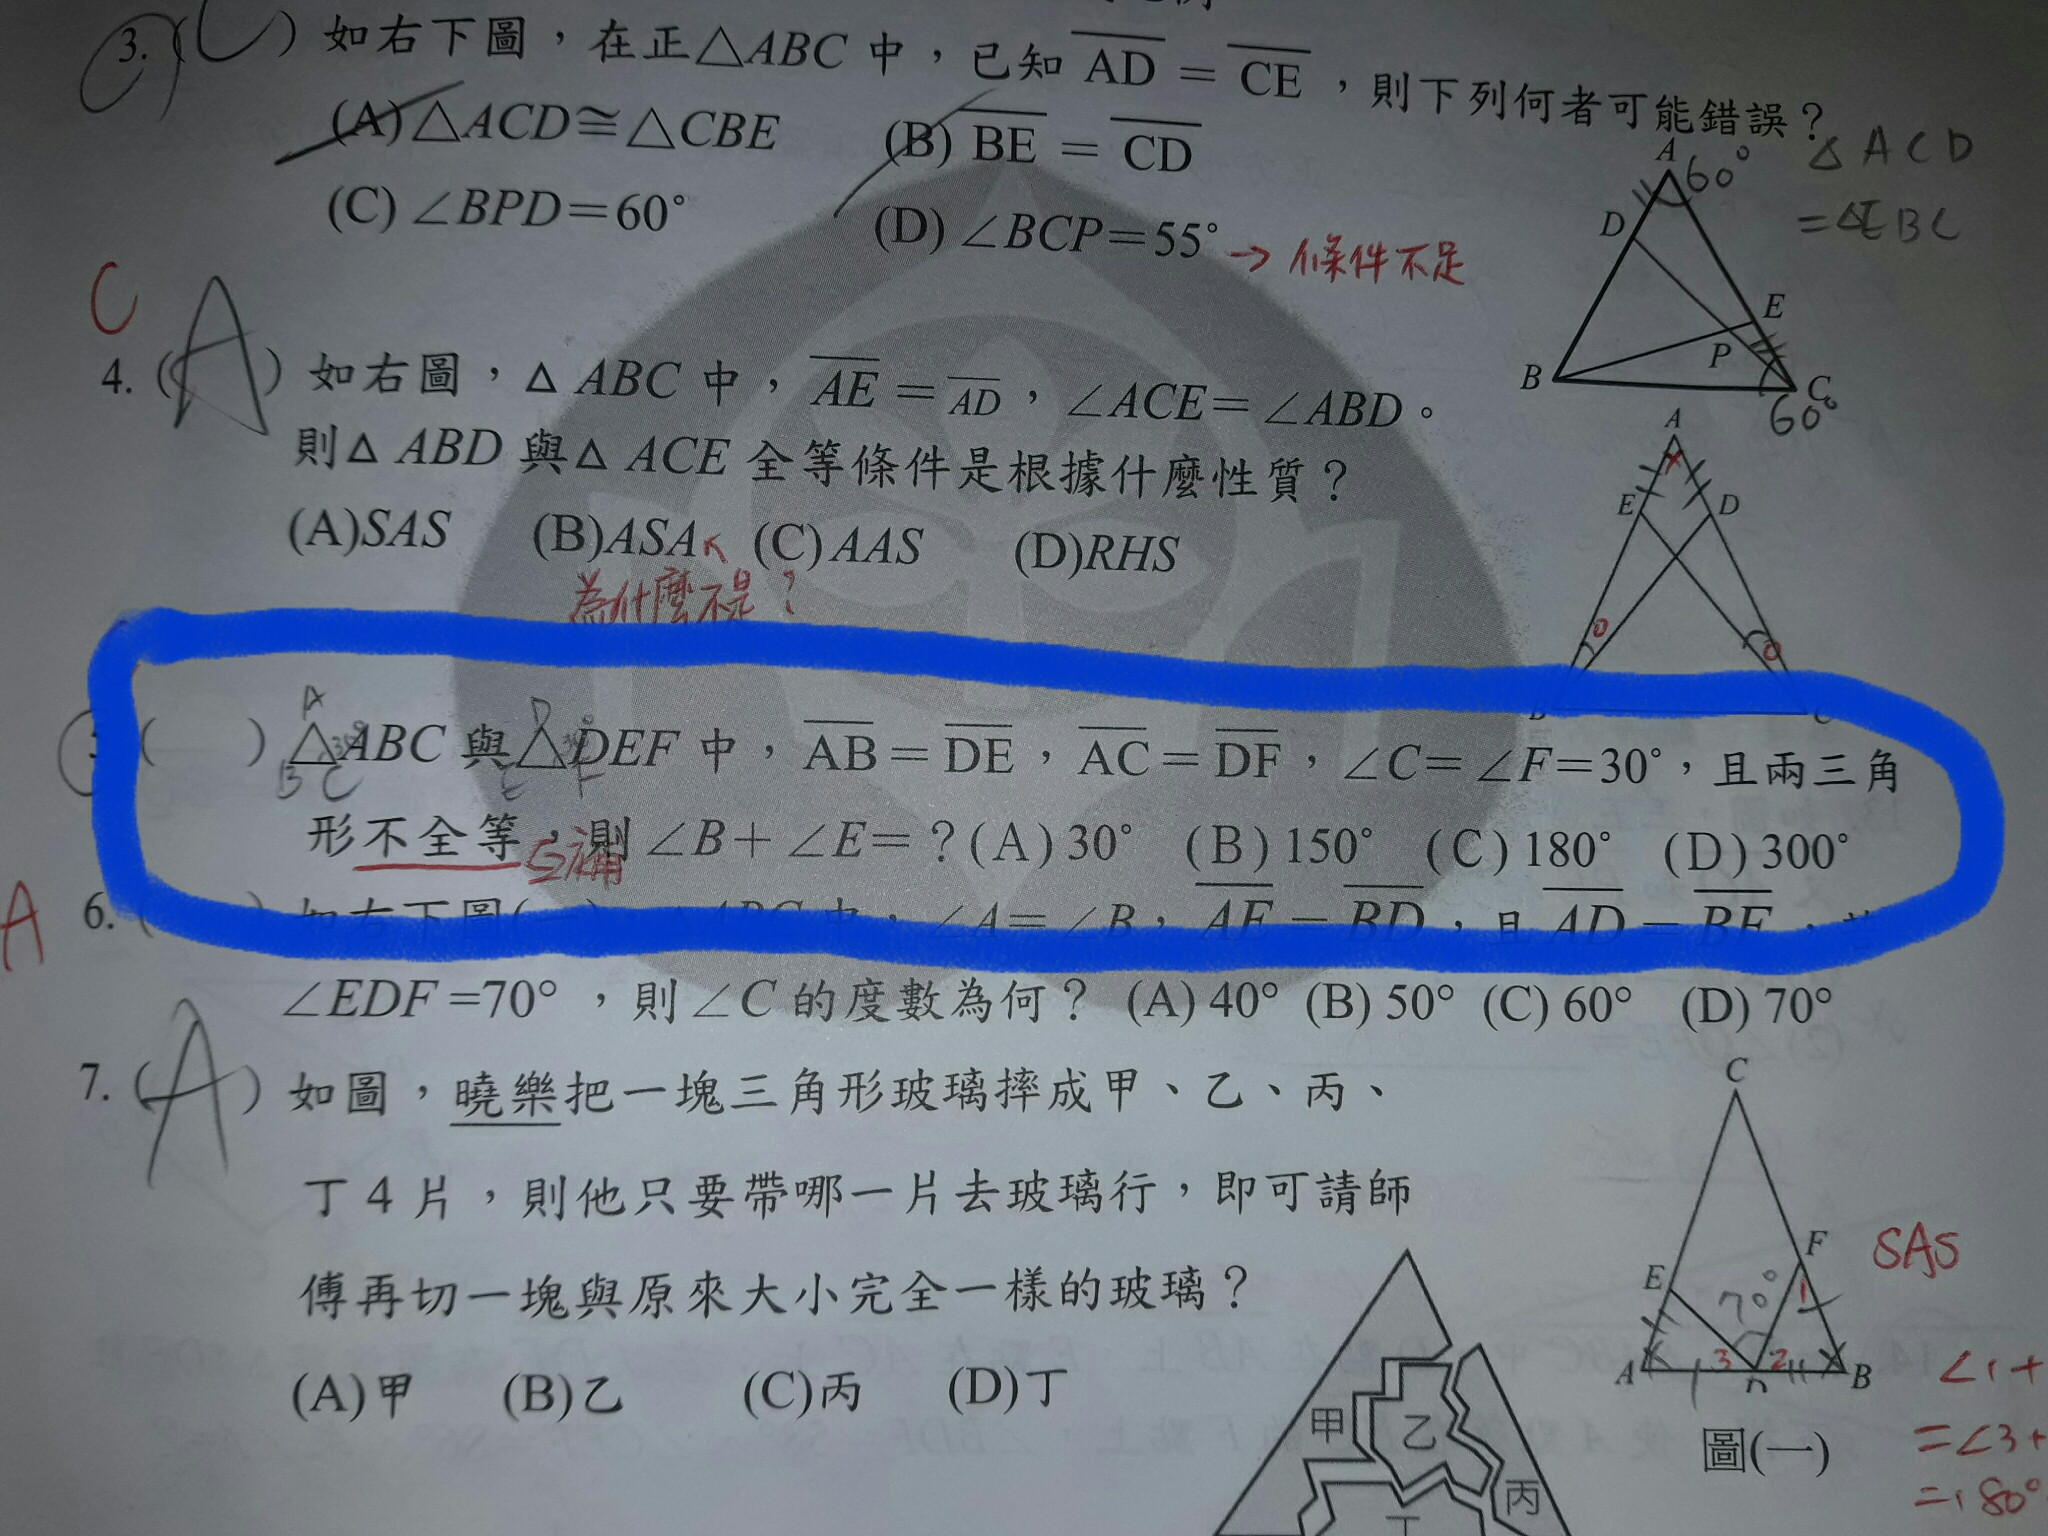 3. (C) 如右下圖，在正△ABC 中，已知 AD = CE，則下列何者可能錯誤？
(A) △ACD≅△CBE (B) BE = CD
(C) ∠BPD=60° (D) ∠BCP=55° → 條件不足
A 60° △ACD
D =△EBC
E
P
B C
60°
C
4. (A) 如右圖，△ ABC 中，AE = AD，∠ACE=∠ABD。
則△ ABD 與△ ACE 全等條件是根據什麼性質？
(A)SAS (B)ASA (C)AAS (D)RHS
為什麼不是？
A
E D
B C
5. ( ) △ABC 與△DEF 中，AB = DE，AC = DF，∠C=∠F=30°，且兩三角
A D
B C E F
形不全等，則 ∠B+ ∠E=？(A) 30° (B) 150° (C) 180° (D) 300°
互補
A
6. ( ) 如右下圖(一)，△ABC 中，∠A=∠B，AE = BD，且 AD = BF，若
∠EDF =70°，則∠C 的度數為何？ (A) 40° (B) 50° (C) 60° (D) 70°
7. (A) 如圖，曉樂把一塊三角形玻璃摔成甲、乙、丙、
丁 4 片，則他只要帶哪一片去玻璃行，即可請師
傅再切一塊與原來大小完全一樣的玻璃？
(A)甲 (B)乙 (C)丙 (D)丁
C
F SAS
E 70° 1
A 3 D 2 B
∠1+
=∠3+
=180°
圖(一)
甲 乙 丙
丁